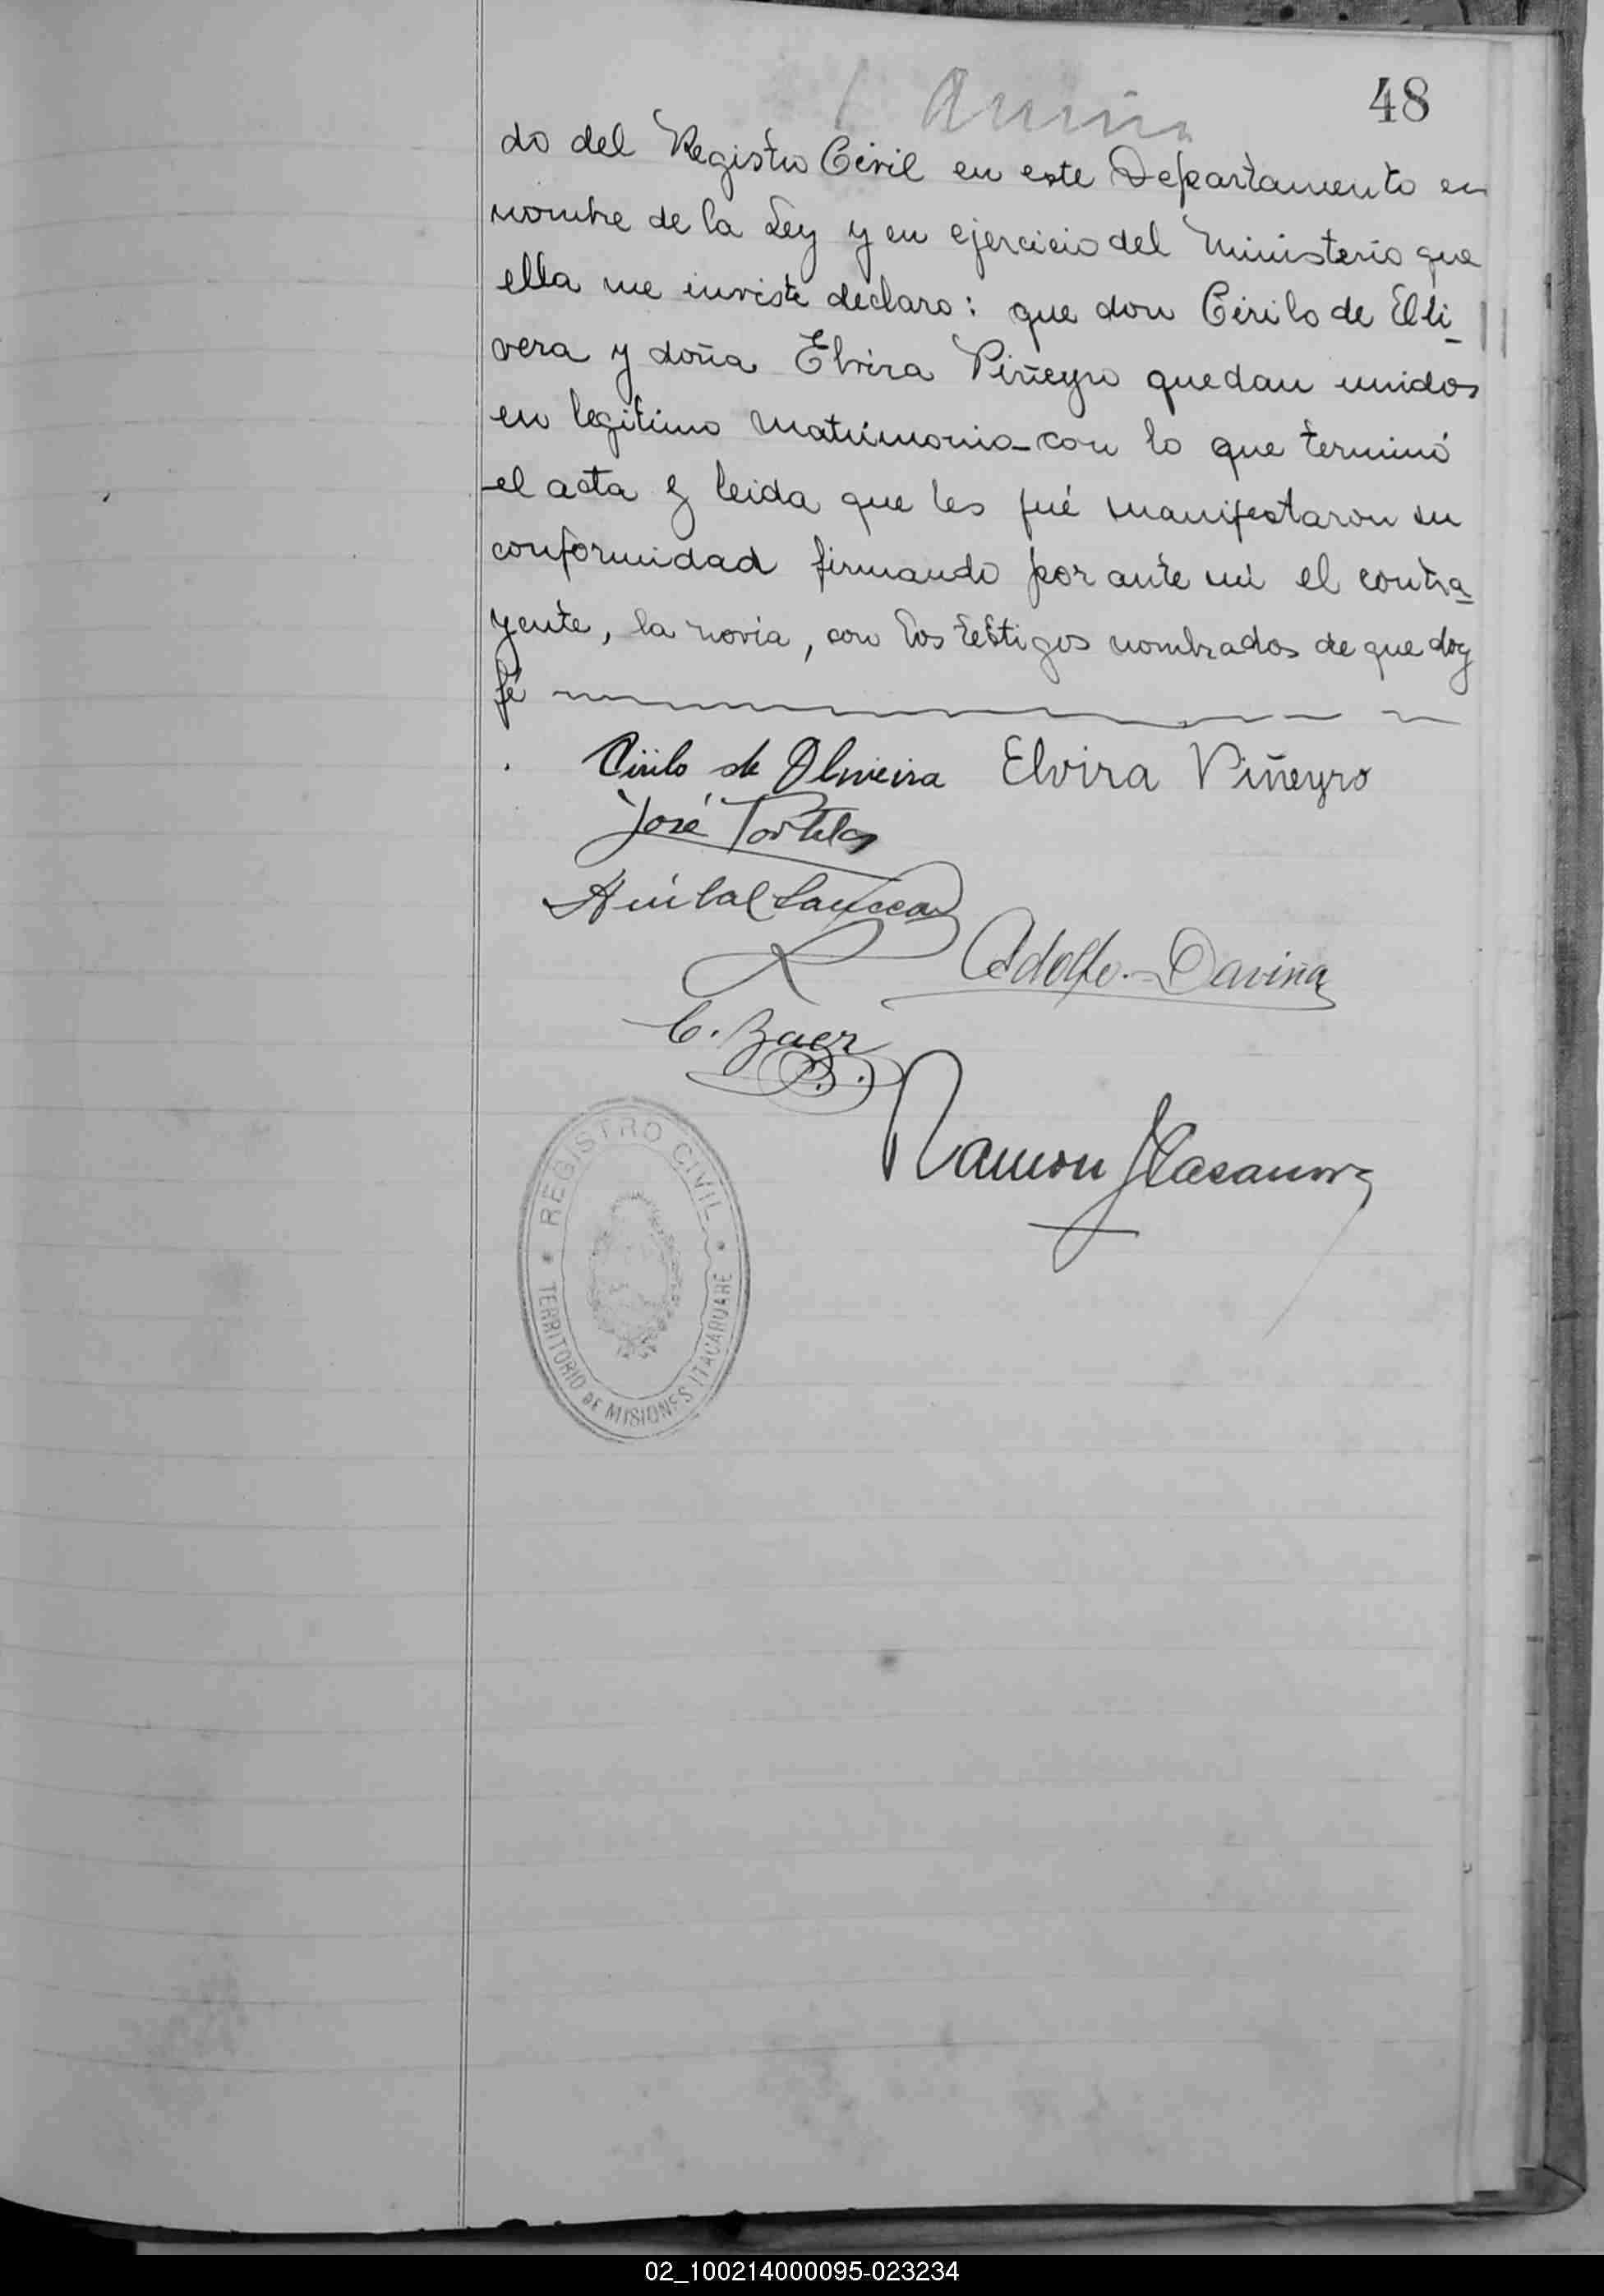 48
do del Registro Civil en este Departamento en
nombre de la Ley y en ejercicio del Ministerio que
ella me inviste declaro: que don Cirilo de Elli-
vera y doña Elvira Piñeyro quedan unidos
en legitimo matrimonio-con lo que terminó
el acta y leida que les fué manifestaron su
conformidad firmando por ante mi el contra-
yente, la novia, con los testigos nombrados de que doy
fé
Cirilo de Olivieira Elvira Piñeyro
José Portela
Anibal
Adolfo Daviña
C. Baer
Ramon J Casanova
REGISTRO CIVIL
TERRITORIO DE MISIONES ITACARUARE
02_100214000095-023234